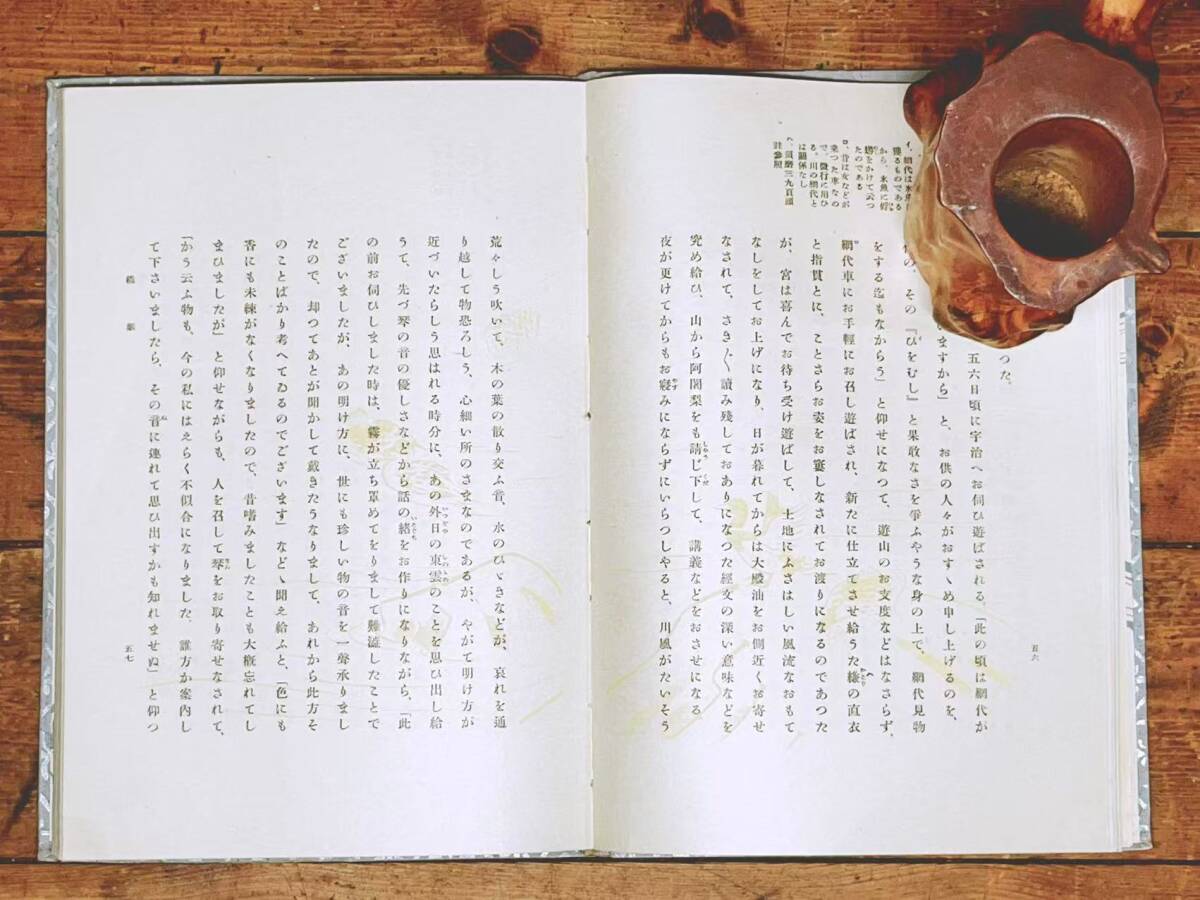 イ、網代は氷魚
獲るものである
から、氷魚に蜉
蝣をかけて云つ
たのである
ロ、昔は女などが
乗つた車なの
で、微行に用ひ
る。川の網代と
は關係なし
ハ、須磨三九頁頭
註參照
つた。
五六日頃に宇治へお伺ひ遊ばされる。「此の頃は網代が
ますから」と、お供の人々がおすゝめ申し上げるのを、
その『ひをむし』と果敢なさを爭ふやうな身の上で、網代見物
をする迄もなからう」と仰せになつて、遊山のお支度などはなさらず、
網代車にお手輕にお召し遊ばされ、新たに仕立てさせ給うた縑の直衣
と指貫とに、ことさらお姿をお窶しなされてお渡りになるのであつた
が、宮は喜んでお待ち受け遊ばして、土地にふさはしい風流なおもて
なしをしてお上げになり、日が暮れてからは大殿油をお側近くお寄せ
なされて、さき〴〵讀み殘しておありになつた經文の深い意味などを
究め給ひ、山から阿闍梨をも請じ下して、講義などをおさせになる
夜が更けてからもお寢みにならずにいらつしやると、川風がたいそう
五六
荒々しう吹いて、木の葉の散り交ふ音、水のひゞきなどが、哀れを通
り越して物恐ろしう、心細い所のさまなのであるが、やがて明け方が
近づいたらしう思はれる時分に、あの外日の東雲のことを思ひ出し給
うて、先づ琴の音の優しさなどから話の緒をお作りになりながら、「此
の前お伺ひしました時は、霧が立ち罩めてをりまして難澁したことで
ございましたが、あの明け方に、世にも珍しい物の音を一聲承りまし
たので、却つてあとが聞かして戴きたうなりまして、あれから此方そ
のことばかり考へてゐるのでございます」などゝ聞え給ふと、「色にも
香にも未練がなくなりましたので、昔嗜みましたことも大概忘れてし
まひましたが」と仰せながらも、人を召して琴をお取り寄せなされて、
「かう云ふ物も、今の私にはえらく不似合になりました。誰方か案内し
て下さいましたら、その音に連れて思ひ出すかも知れませぬ」と仰つ
橋姫
五七